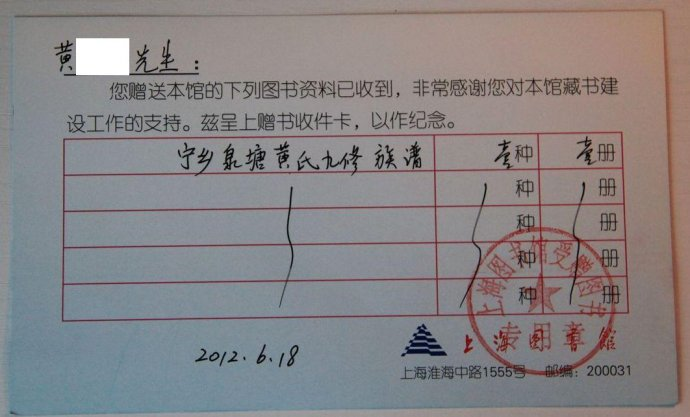 黄 先生：
您赠送本馆的下列图书资料已收到，非常感谢您对本馆藏书建
设工作的支持。兹呈上赠书收件卡，以作纪念。
宁乡泉塘黄氏九修族谱 壹种 壹册
种 册
种 册
种 册
种 册
上海图书馆受赠图书
专用章
2012.6.18
上海图书馆
上海淮海中路1555号 邮编：200031